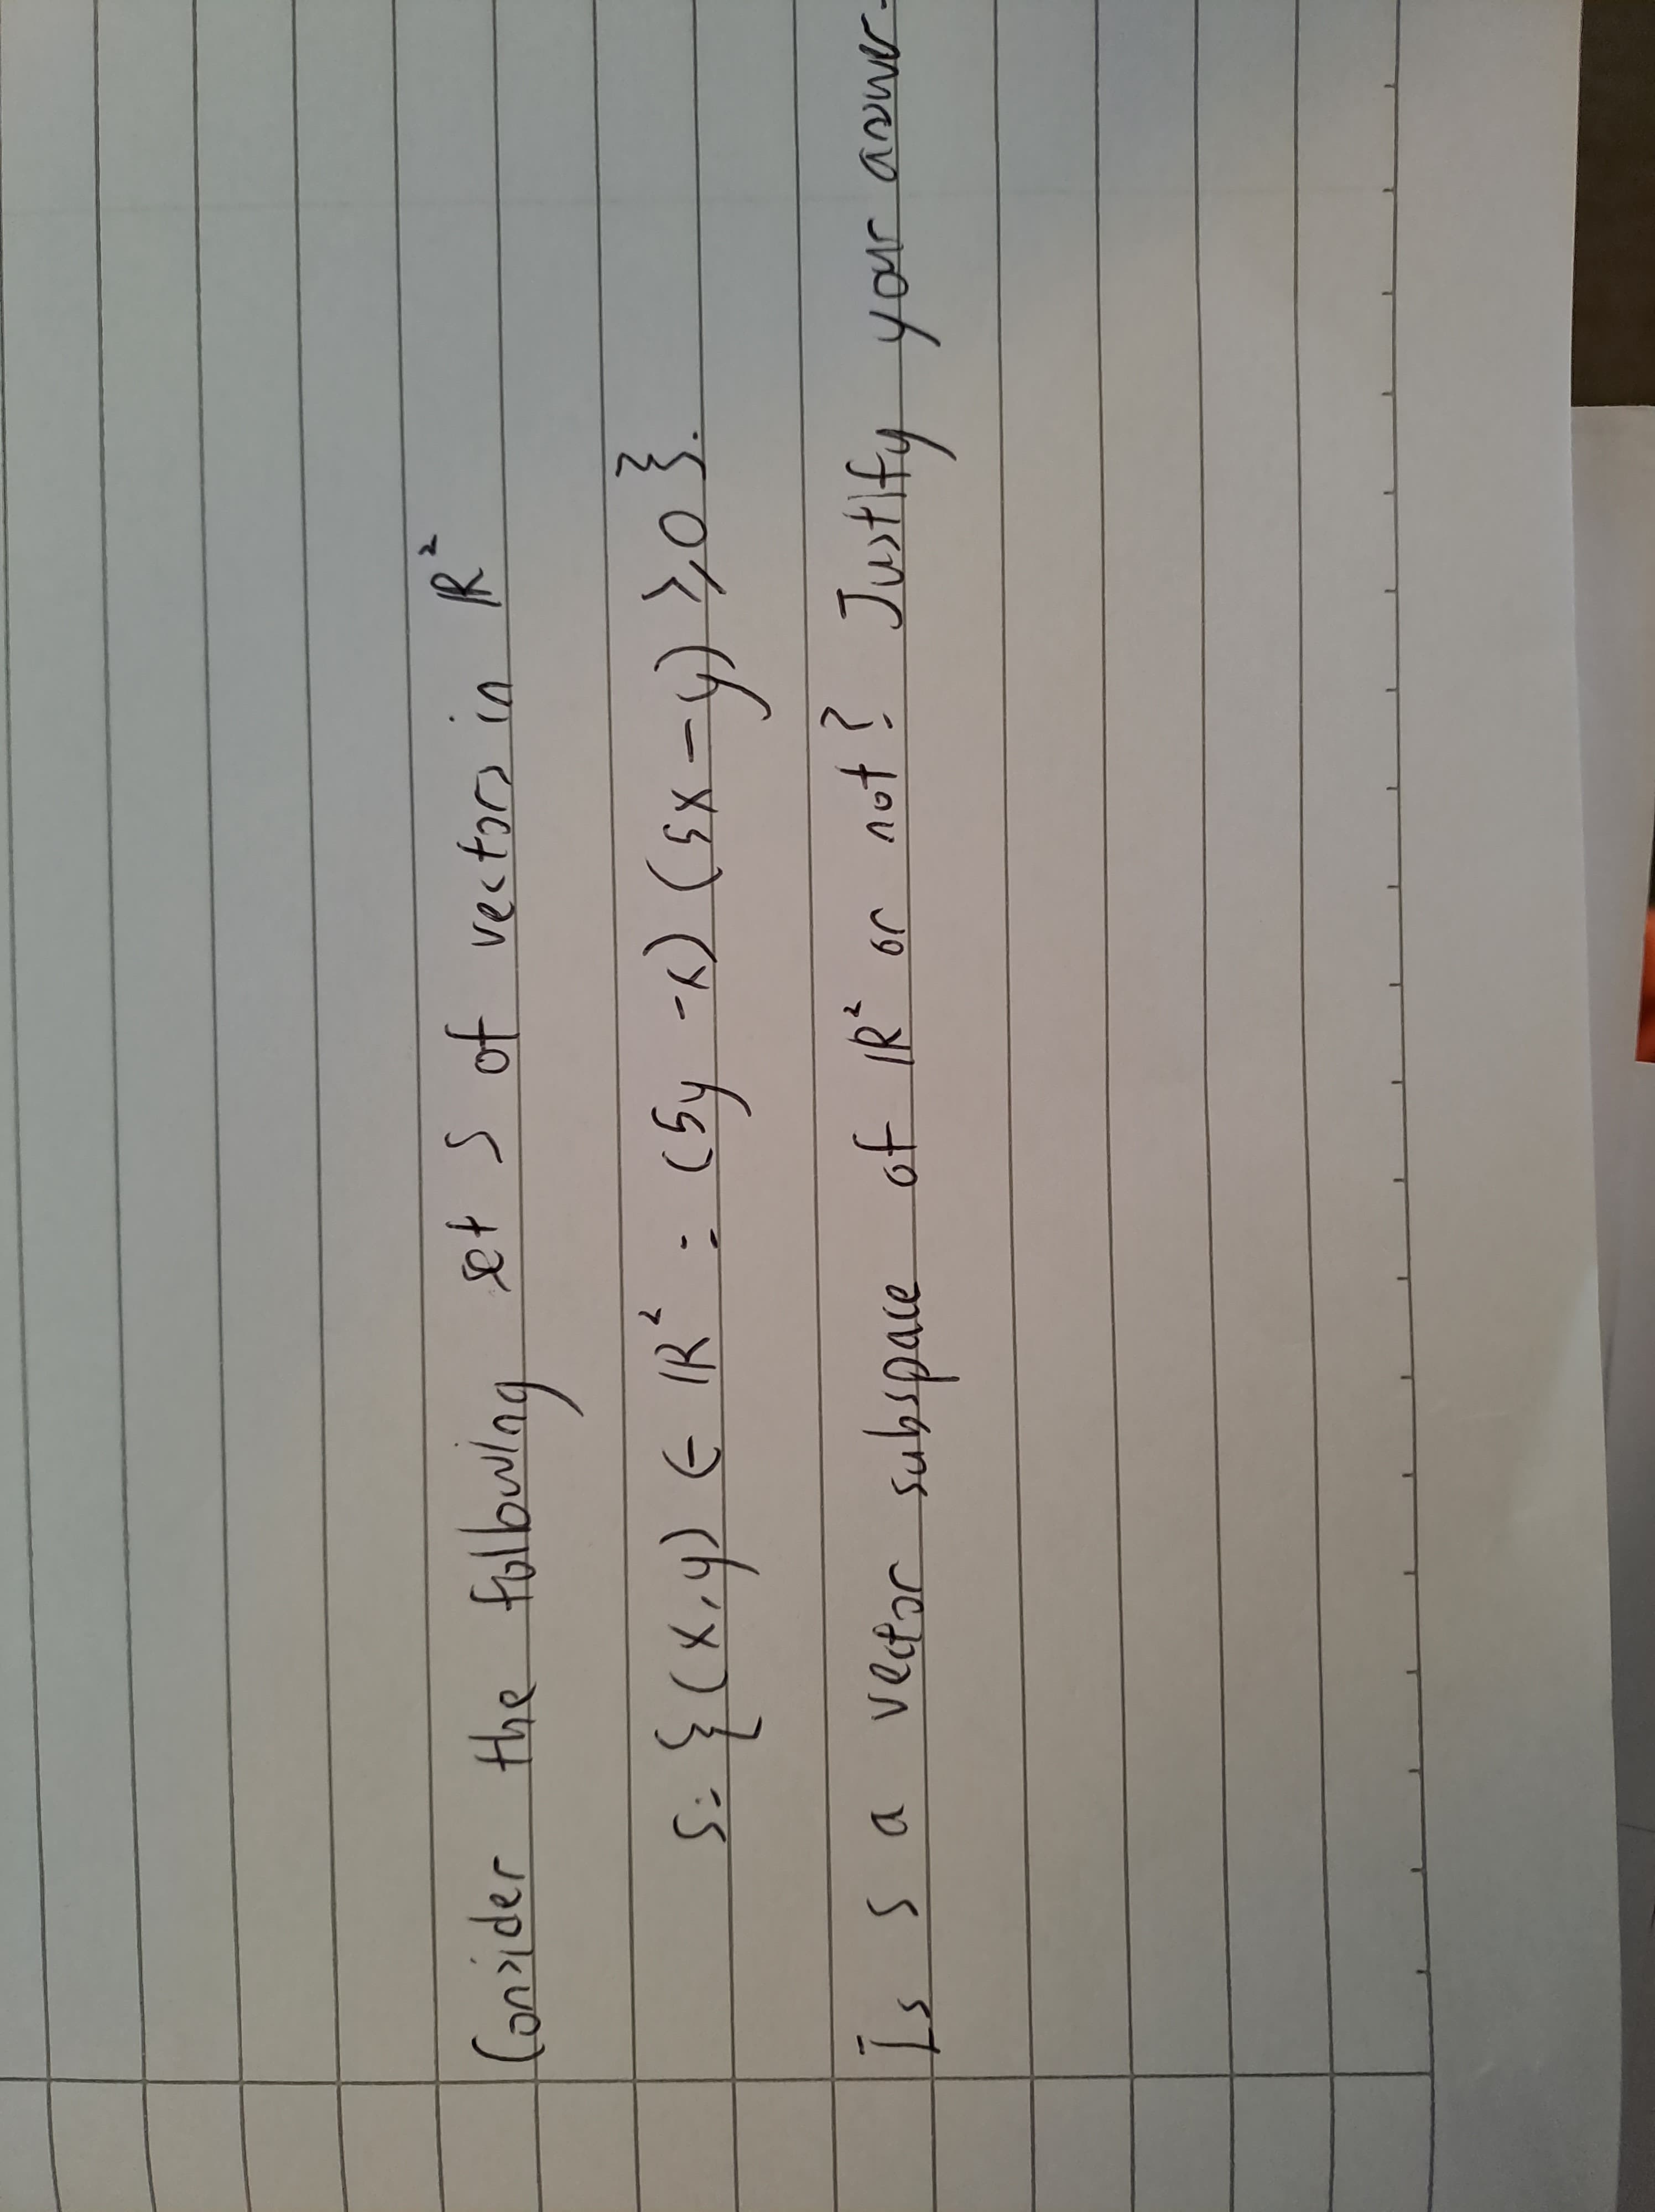 Consider the following set S of vectors in ℝ²
S = {(x,y) ∈ ℝ² : (5y - x)(5x - y) ⩾ 0}.
Is S a vector subspace of ℝ² or not? Justify your answer.